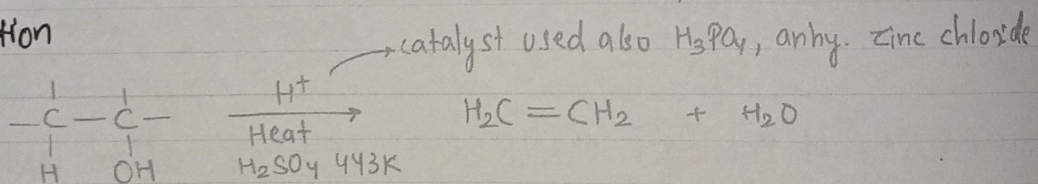 tion
catalyst used also H3PO4, anhy. zinc chloride
H+
— C — C —
H2C = CH2 + H2O
Heat
H OH
H2SO4 443K